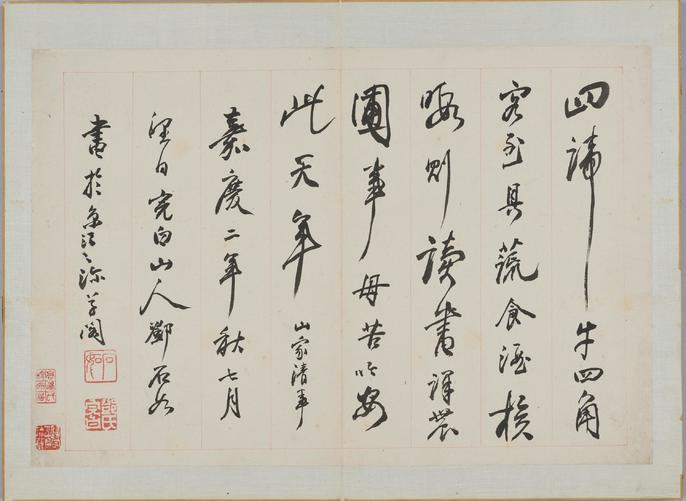 四蹄牛四角
客至具蔬食酒核
暇則讀書課農
圃事毋苦吟安
此天年 山家清事
嘉慶二年秋七月
望日完白山人鄧石如
書於江之草閣
石如